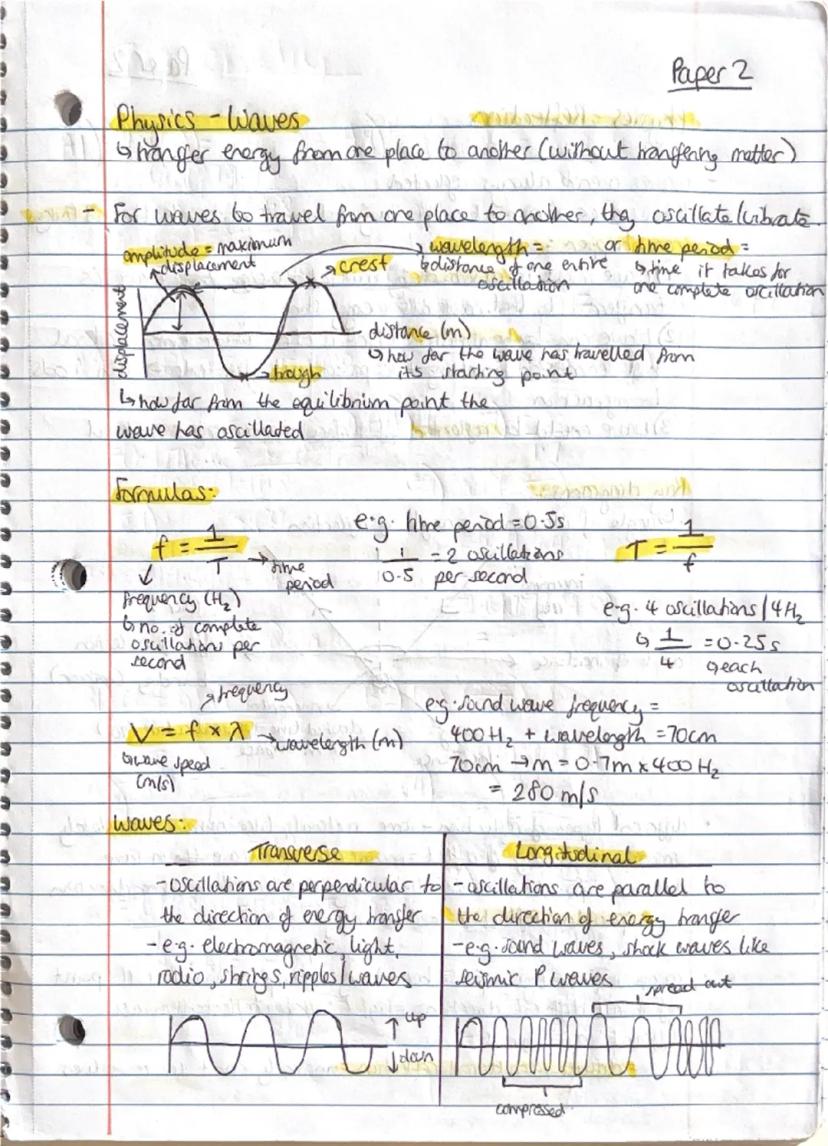 Paper 2
Physics - Waves
↳ transfer energy from one place to another (without transfering matter)
- For waves to travel from one place to another, they oscillate/vibrate.
amplitude = maximum
displacement
crest
wavelength =
↳ distance of one entire
oscillation
or time period =
↳ time it takes for
one complete oscillation
displacement
distance (m)
↳ how far the wave has travelled from
its starting point
trough
↳ how far from the equilibrium point the
wave has oscillated
Formulas:
f = 1/T → time
period
frequency (Hz)
↳ no. of complete
oscillations per
second
e.g. time period = 0.5s
1/0.5 = 2 oscillations
per second
T = 1/f
e.g. 4 oscillations / 4Hz
↳ 1/4 = 0.25s
↳ each
oscillation
frequency
V = f × λ → wavelength (m)
↳ wave speed
(m/s)
e.g. sound wave frequency =
400Hz + wavelength = 70cm
70cm → m = 0.7m × 400Hz
= 280 m/s
Waves:
Transverse
- oscillations are perpendicular to
the direction of energy transfer
- e.g. electromagnetic, light,
radio, strings, ripples/waves
up
down
Longitudinal
- oscillations are parallel to
the direction of energy transfer
- e.g. sound waves, shock waves like
seismic P waves
spread out
compressed